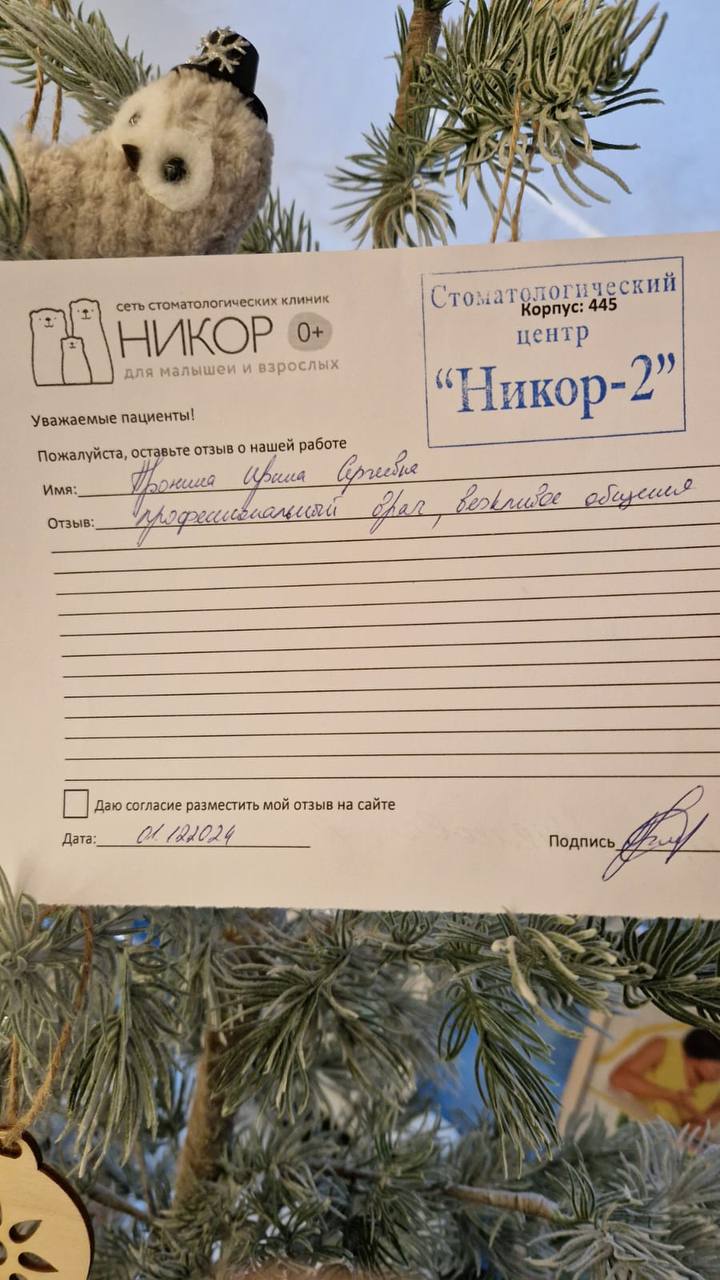 сеть стоматологических клиник
НИКОР 0+
для малышей и взрослых
Стоматологический
Корпус: 445
центр
“Никор-2”
Уважаемые пациенты!
Пожалуйста, оставьте отзыв о нашей работе
Имя: Пронина Ирина Сергеевна
Отзыв: профессиональный врач, вежливое общения
Даю согласие разместить мой отзыв на сайте
Дата: 01.122024
Подпись